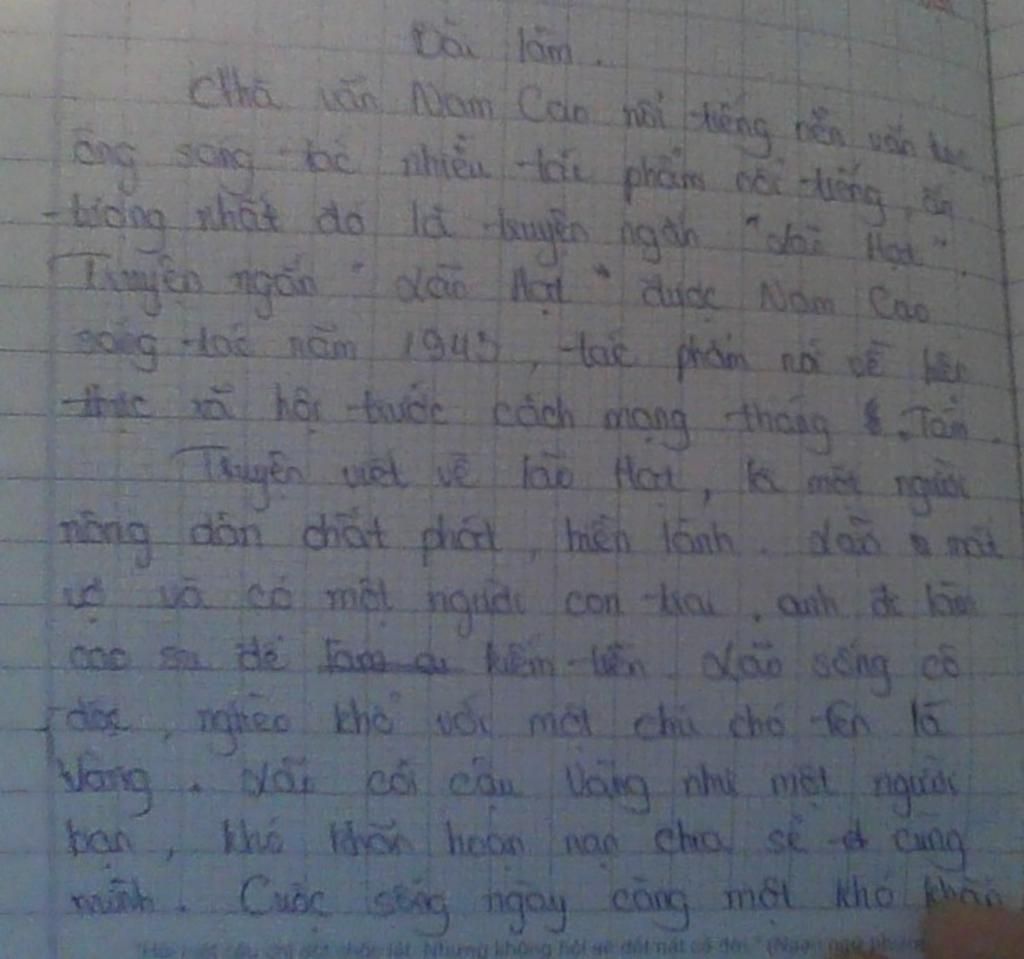 Bài làm.
Nhà văn Nam Cao nổi tiếng nền văn học
ông sáng tác nhiều tác phẩm nổi tiếng, ấn
tượng nhất đó là truyện ngắn "Lão Hạc".
Truyện ngắn "Lão Hạc" được Nam Cao
sáng tác năm 1943, tác phẩm nói về hiện
thực xã hội trước cách mạng tháng Tám.
Truyện viết về lão Hạc, là một người
nông dân chất phát, hiền lành. Lão mất
vợ và có một người con trai, anh đi làm
cao su để kiếm tiền. Lão sống cô
độc, nghèo khổ với một chú chó tên là
Vàng. Lão coi cậu Vàng như một người
bạn, khó khăn hoạn nạn chia sẻ cùng
mình. Cuộc sống ngày càng một khó khăn